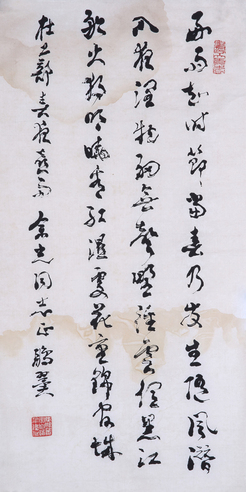 好雨知时節當春乃發生隨風潛
入夜潤物細無聲野徑雲俱黑江
船火獨明曉看紅濕處花重錦官城
杜工部春夜喜雨 同志正